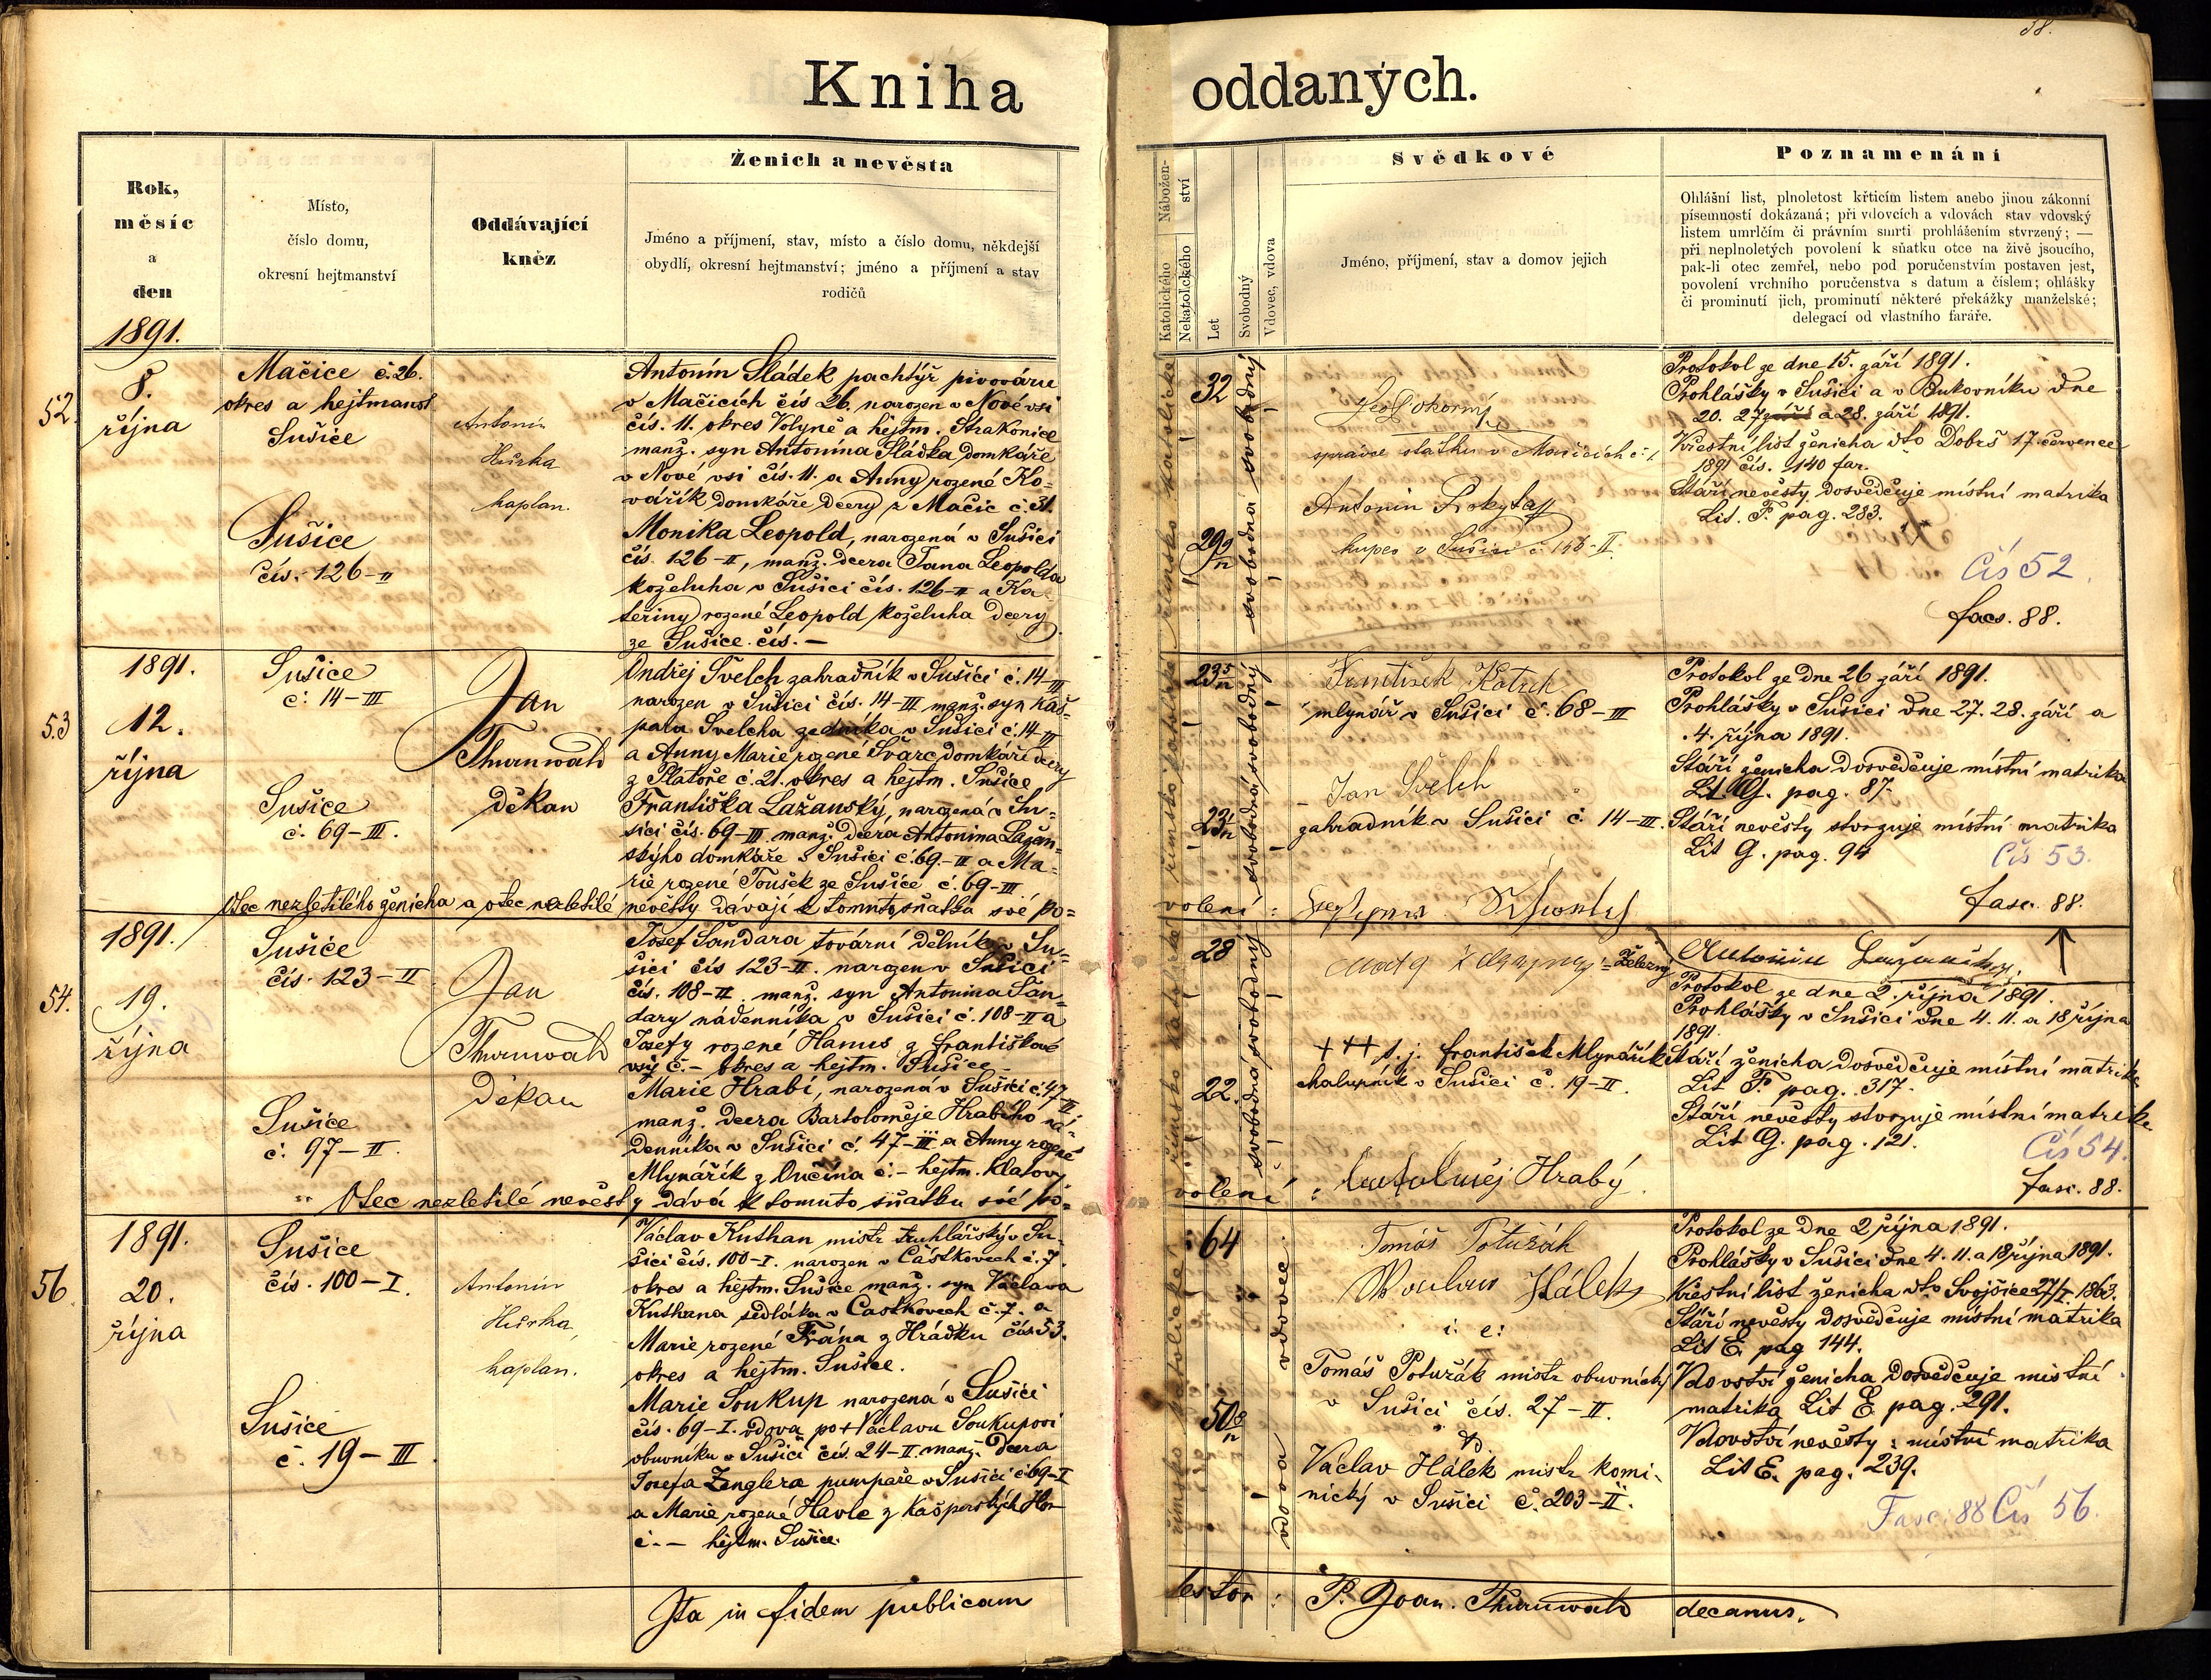 58.
Kniha oddaných.
Rok,
měsíc
a
den
1891.
Místo,
číslo domu,
okresní hejtmanství
Oddávající
kněz
Ženich a nevěsta
Jméno a příjmení, stav, místo a číslo domu, někdejší
obydlí, okresní hejtmanství; jméno a příjmení a stav
rodičů
Nábožen-
ství
Katolického
Nekatolického
Let
Svobodný
Vdovec, vdova
Svědkové
Jméno, příjmení, stav a domov jejich
Poznamenání
Ohlášní list, plnoletost křticím listem anebo jinou zákonní
písemností dokázaná; při vdovcích a vdovách stav vdovský
listem umrlčím či právním smrti prohlášením stvrzený; —
při neplnoletých povolení k sňatku otce na živě jsoucího,
pak-li otec zemřel, nebo pod poručenstvím postaven jest,
povolení vrchního poručenstva s datum a číslem; ohlášky
či prominutí jich, prominutí některé překážky manželské;
delegací od vlastního faráře.
52.
8.
října
Mačice č. 26.
okres a hejtmanst
Sušice
Sušice
čís. 126-II
Antonín
Hůrka
kaplan.
Antonín Sládek pachtýř pivovaru
v Mačicích čís 26. narozen v Nové vsi
čís. 11. okres Volyně a hejtm. Strakonice
manž. syn Antonína Sládka domkáře
v Nové vsi čís. 11. a Anny rozené Ko=
vářík domkáře dcery z Mačic č. 31.
Monika Leopold, narozená v Sušici
čís. 126-II, manž. dcera Jana Leopolda
koželuha v Sušici čís. 126-II a Ka
teřiny rozené Leopold koželuha dcery
ze Sušice čís. —
32
svobodný
29
svobodná
Pokorný
správce statku v Mačicích č. 1
Antonín Rokyta
kupec v Sušici č. 156-II.
Protokol ze dne 15. září 1891.
Prohlášky v Sušici a v Bukovníku dne
20. 27 září a 28. září 1891.
Křestní list ženicha dto Dobrš 17. července
1891 čís. 140 far.
Stáří nevěsty dosvědčuje místní matrika
Lit. F. pag. 283.
Čís 52.
fasc. 88.
53
1891.
12.
října
Sušice
č. 14-III
Sušice
č. 69-III.
Jan
Thurnwald
děkan
Ondřej Švelch zahradník v Sušici č. 14-III
narozen v Sušici čís. 14-III manž. syn Kaš=
para Švelcha zedníka v Sušici č. 14-III
a Anny Marie rozené Švarc domkáře dcery
z Platoře č. 21. okres a hejtm. Sušice
Františka Lažanský, narozená v Su=
šici čís. 69-III manž. dcera Antonína Lažan=
ského domkáře v Sušici č. 69-III a Ma=
rie rozené Toušek ze Sušice č. 69-III
Otec nezletilého ženicha a otec nezletilé nevěsty dávají k tomuto sňatku své po=
volení:
23
svobodný
23
svobodná
František Kotek
mlynář v Sušici č. 68-III
Jan Švelch
zahradník v Sušici č. 14-III.
Protokol ze dne 26 září 1891.
Prohlášky v Sušici dne 27. 28. září a
4. října 1891.
Stáří ženicha dosvědčuje místní matrika
Lit G. pag. 87.
Stáří nevěsty stvrzuje místní matrika
Lit G. pag. 94
Čís 53.
fasc. 88.
54.
1891.
19.
října
Sušice
čís. 123-II
Sušice
č. 97-II.
Jan
Thurnwald
děkan
Josef Šandara tovární dělník v Su=
šici čís 123-II. narozen v Sušici
čís. 108-II. manž. syn Antonína Šan=
dary nádenníka v Sušici č. 108-II a
Josefy rozené Hanus z Františkové
vsy č. - okres a hejtm. Sušice
Marie Hrabí, narozená v Sušici č. 47-III
manž. dcera Bartoloměje Hrabího ná=
denníka v Sušici č. 47-III a Anny rozené
Mlynářík z Lučína č. - hejtm. Klatovy
Otec nezletilé nevěsty dává k tomuto sňatku své po=
volení:
28
svobodný
22.
svobodná
Železný
+++ t. j. František Mlynářík
chalupník v Sušici č. 19-II.
Bartoloměj Hrabý
Antonín Lažanský.
Protokol ze dne 2. října 1891.
Prohlášky v Sušici dne 4. 11. a 18 října
1891.
Stáří ženicha dosvědčuje místní matrika
Lit F. pag. 317.
Stáří nevěsty stvrzuje místní matrika
Lit G. pag. 121.
Čís 54.
fasc. 88.
56
1891.
20.
října
Sušice
čís. 100-I.
Sušice
č. 19-III
Antonín
Hůrka,
kaplan.
Václav Kuthan mistr truhlářský v Su=
šici čís. 100-I. narozen v Částkovech č. 7.
okres a hejtm. Sušice manž. syn Václava
Kuthana sedláka v Častkovech č. 7. a
Marie rozené Frána z Hrádku čís 53.
okres a hejtm. Sušice.
Marie Soukup narozená v Sušici
čís. 69-I. vdova po + Václavu Soukupovi
obuvníku v Sušici čís. 24-II. manž. dcera
Josefa Zenglera pumpaře v Sušici č. 69-I
a Marie rozené Havle z Kašperských Hor
č. - hejtm. Sušice.
64
vdovec
50
vdova
Tomáš Poturák
Václav Hálek
i: e:
Tomáš Poturák mistr obuvnický
v Sušici čís. 27-II.
Václav Hálek mistr komi-
nický v Sušici č. 203-II.
Protokol ze dne 2. října 1891.
Prohlášky v Sušici dne 4. 11. a 18 října 1891.
Křestní list ženicha dto Svojšice 27/I. 1863.
Stáří nevěsty dosvědčuje místní matrika
Lit E. pag 144.
Vdovství ženicha dosvědčuje místní
matrika Lit E. pag. 291.
Vdovství nevěsty: místní matrika
Lit E. pag. 239.
Fasc. 88 Čís 56.
Ita in fidem publicam
testor: P. Joan. Thurnwald decanus.